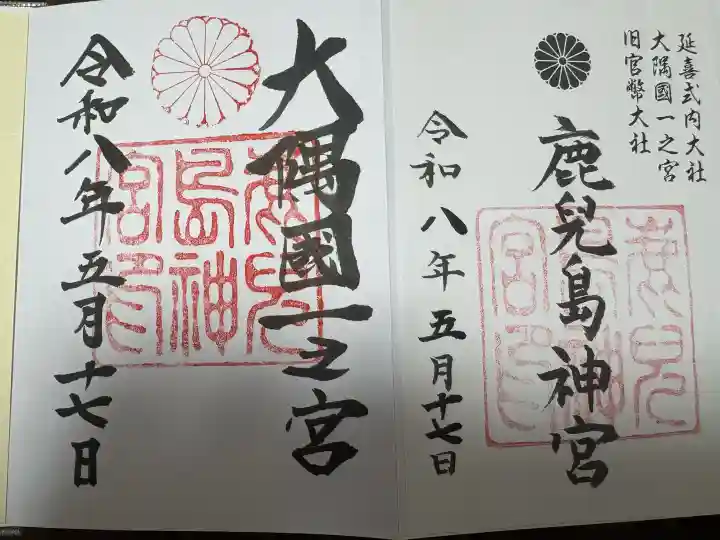 延喜式内大社
大隅國一之宮
旧官幣大社
鹿兒島神宮
令和八年五月十七日
大隅國一之宮
令和八年五月十七日
鹿兒
島神
宮印